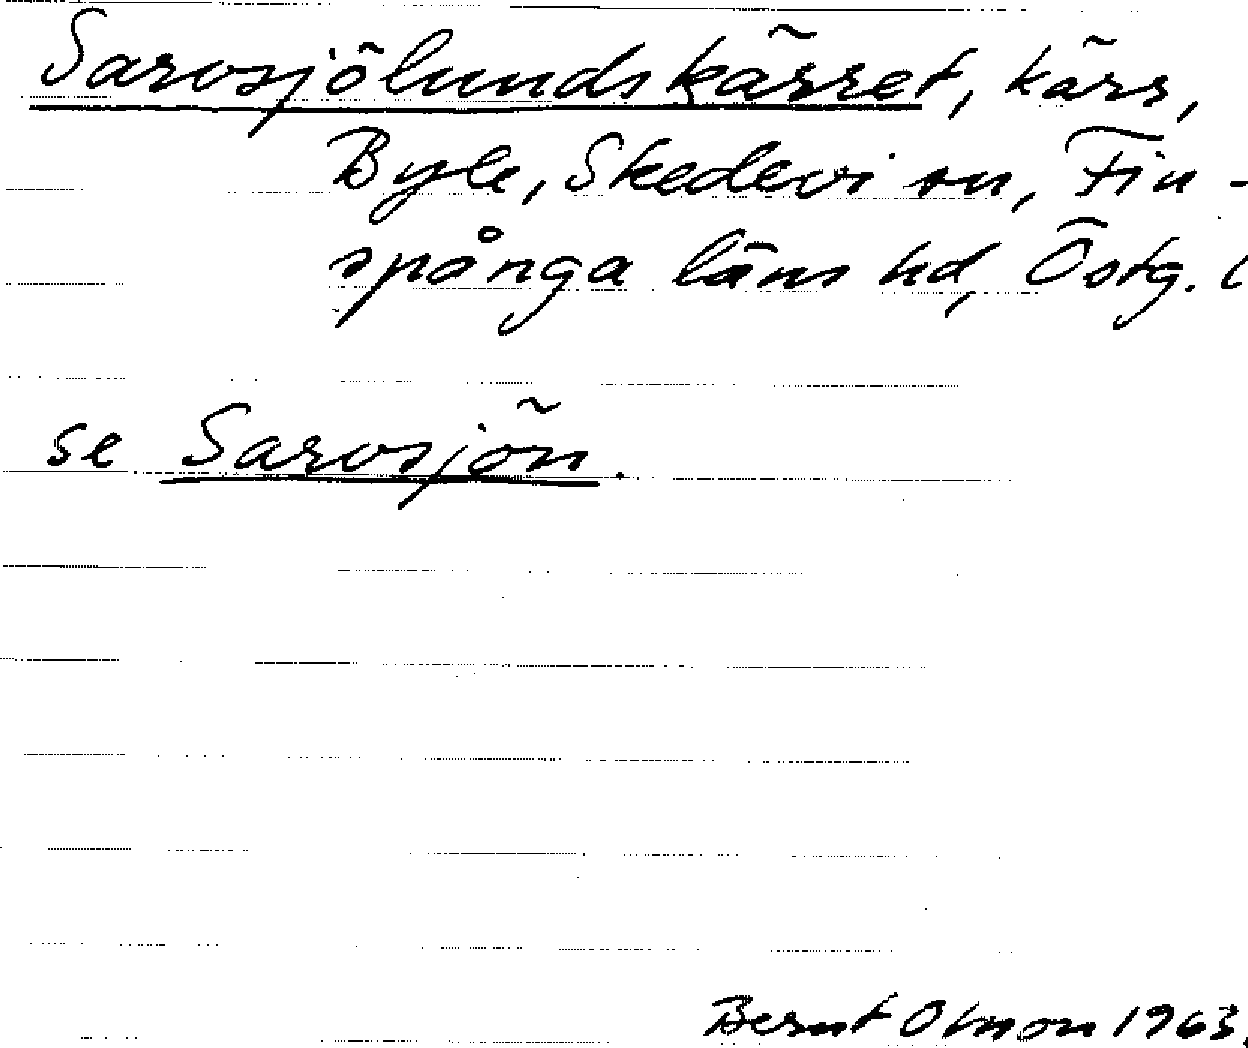 Sarvsjölundskärret, kärr,
Byle, Skedevi sn, Fin-
spånga läns hd, Östg. l
se Sarvsjön.
Bernt Olsson 1963.